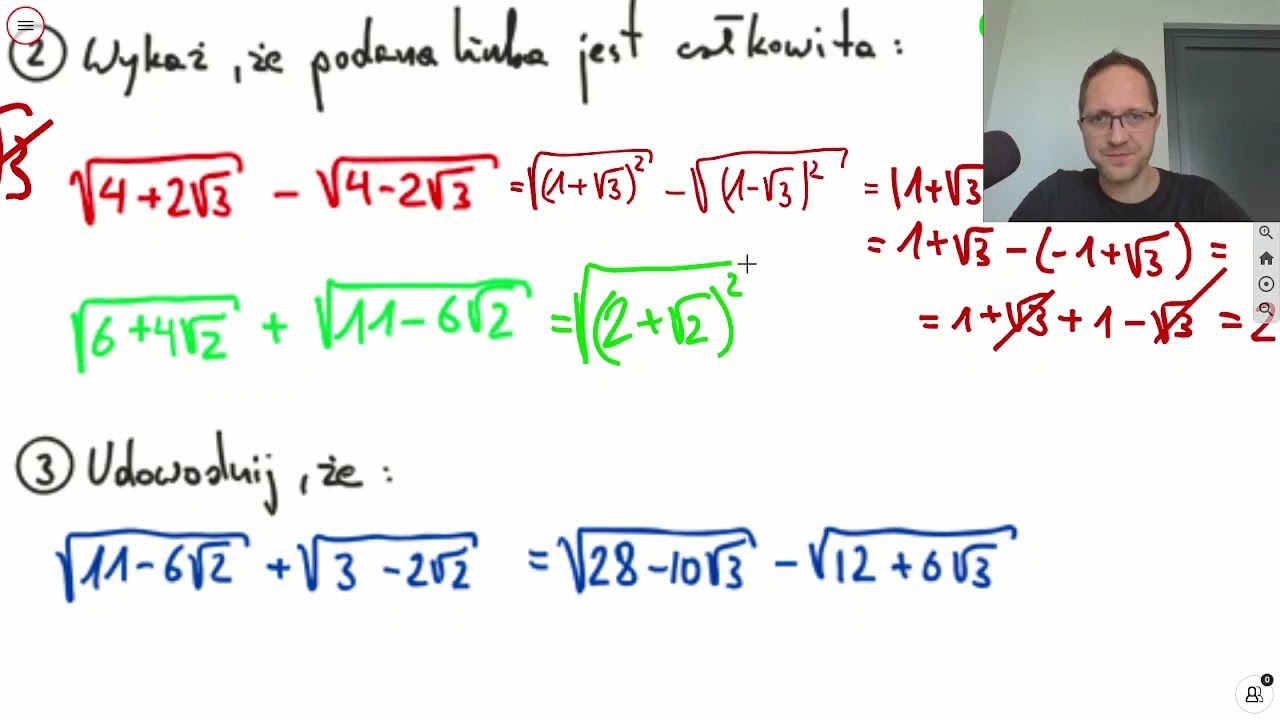 ② Wykaż, że podana liczba jest całkowita:
√3
√(4+2√3) - √(4-2√3) = √((1+√3)²) - √((1-√3)²) = |1+√3
= 1+√3 - (-1+√3) =
√(6+4√2) + √(11-6√2) = √((2+√2)²)
= 1+√3+1-√3 = 2
③ Udowodnij, że:
√(11-6√2) + √(3-2√2) = √(28-10√3) - √(12+6√3)
0